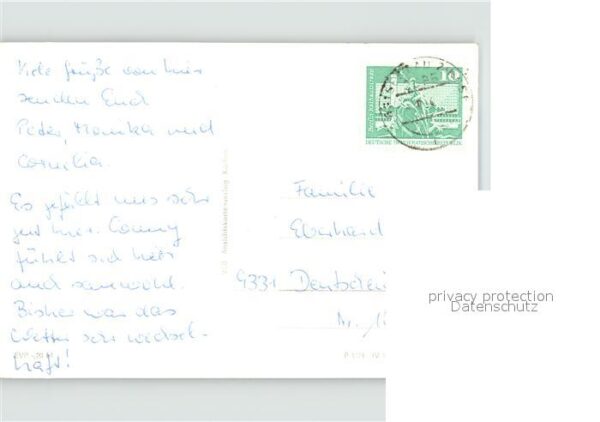 Viele Grüße von hier
senden Euch
Peter, Monika und
Cornelia.
Es gefällt uns sehr
gut hier. Conny
fühlt sich hier
auch sauwohl.
Bisher war das
Wetter sehr wechsel-
haft!
10
DEUTSCHE DEMOKRATISCHE REPUBLIK
Familie
Eberhard
9331 Deutschein
Nr.
privacy protection
Datenschutz